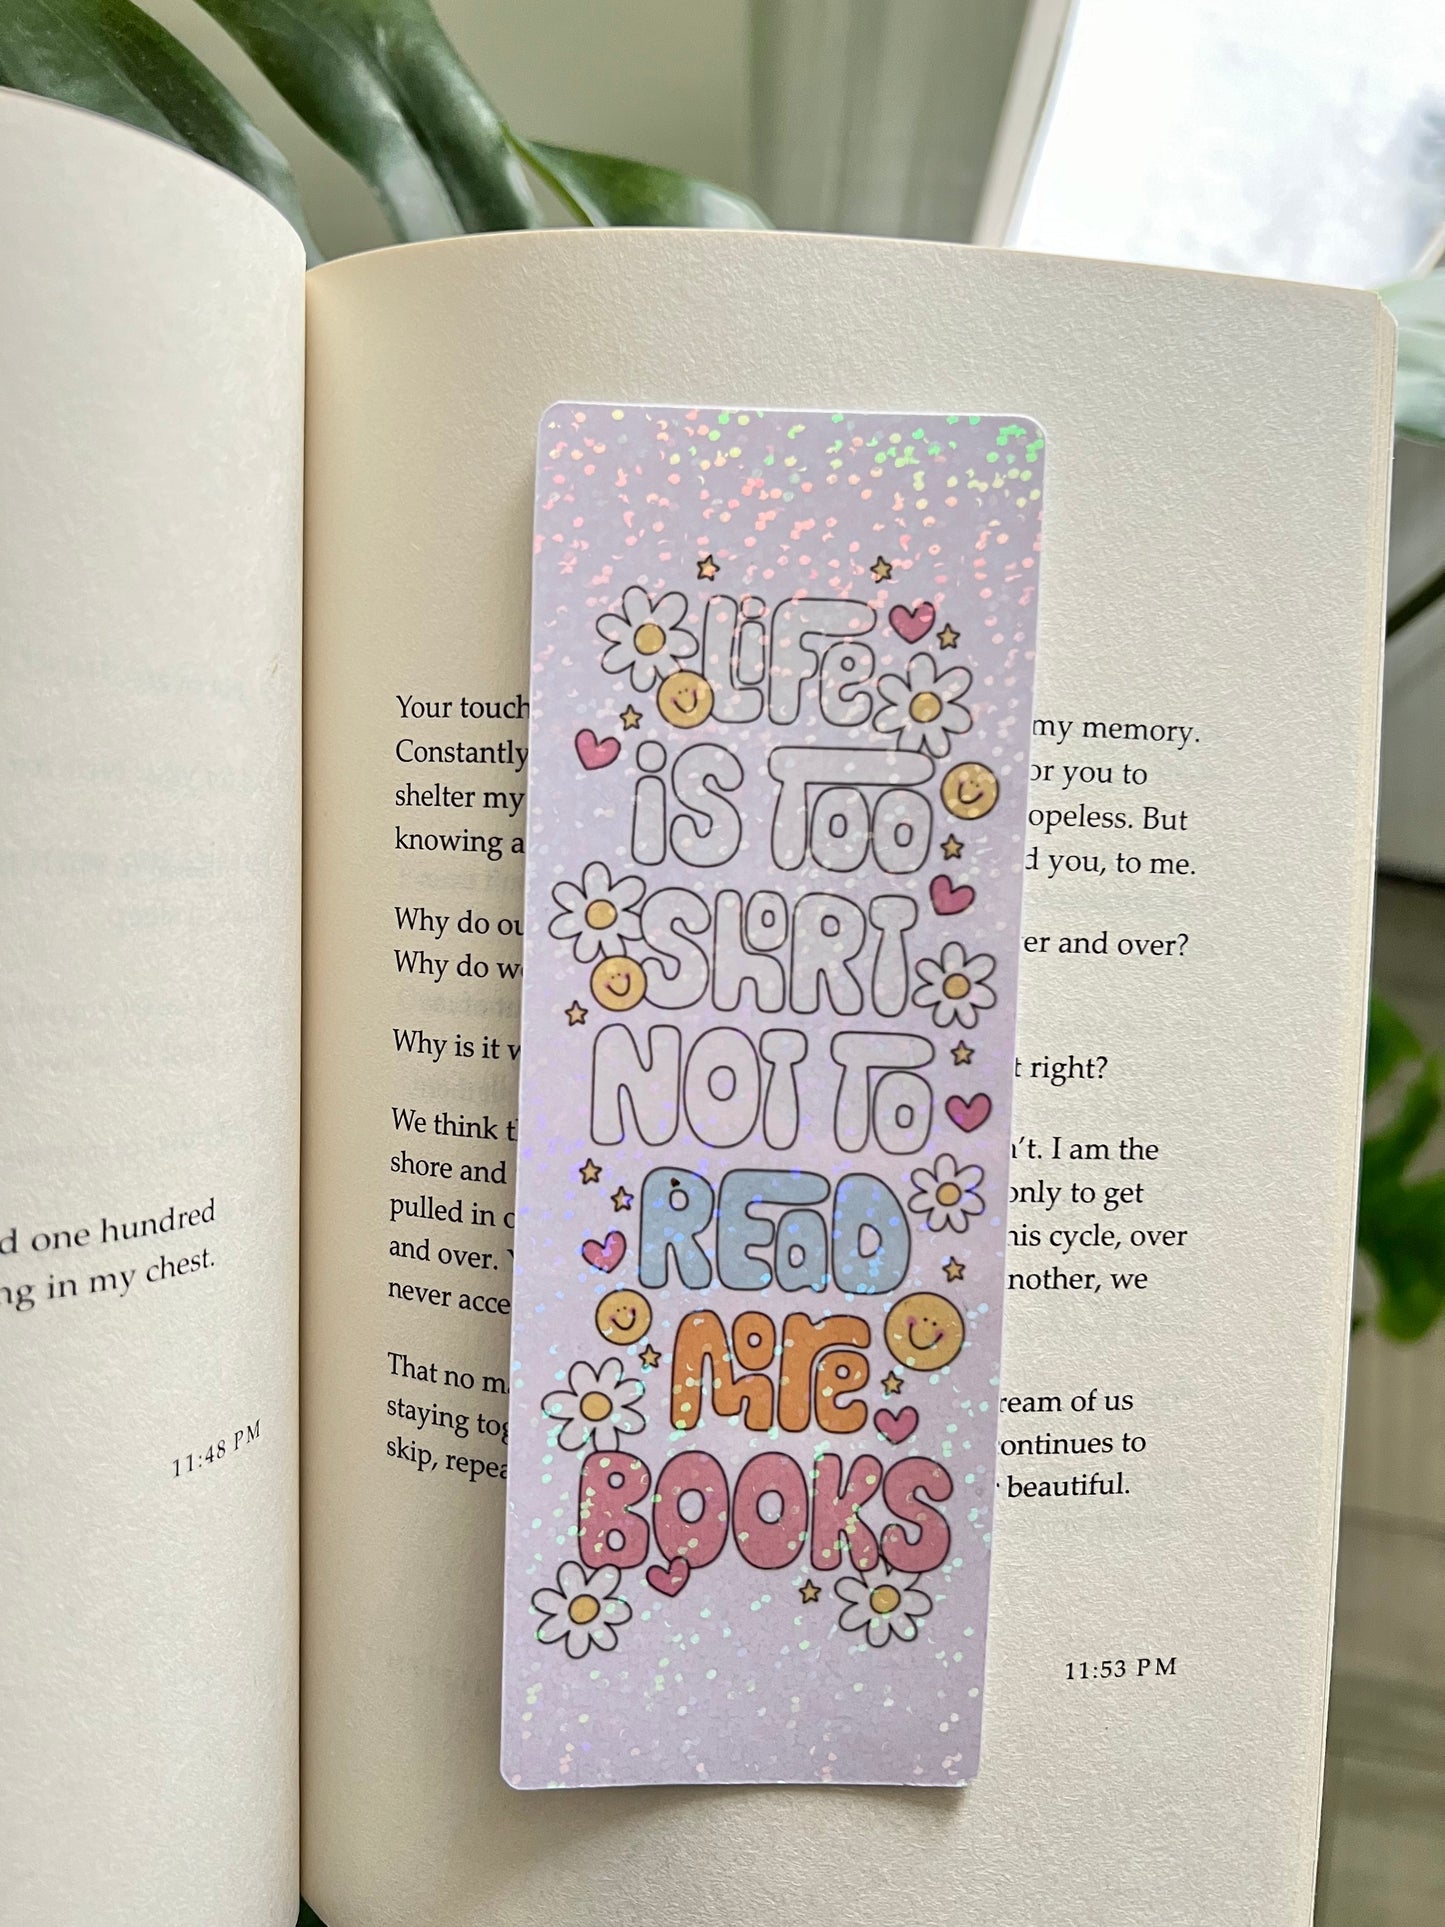 d one hundred
ng in my chest.
11:48 PM
LiFe
iS Too
ShoRT
NOT To
READ
more
BOOKS
Your touch my memory.
Constantly or you to
shelter my opeless. But
knowing a d you, to me.
Why do ou er and over?
Why do w
Why is it t right?
We think n't. I am the
shore and only to get
pulled in his cycle, over
and over. nother, we
never acce
That no ream of us
staying tog ontinues to
skip, repea beautiful.
11:53 PM